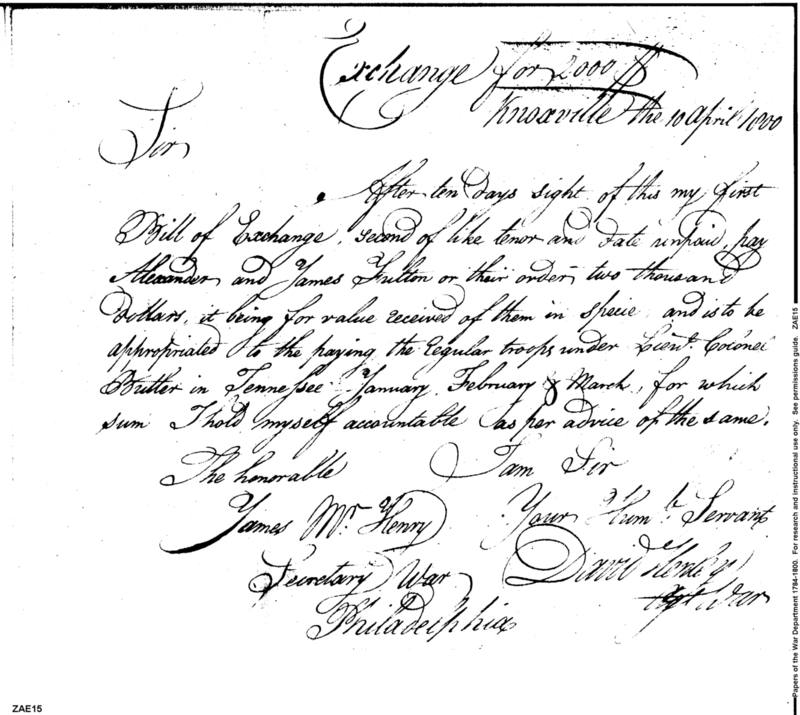 Exchange for 2000 $
Knoxville the 10 April 1800
Sir
After ten days sight of this my first
Bill of Exchange, second of like tenor and date unpaid, pay
Alexander and James Fulton or their order two thousand
Dollars, it being for value received of them in specie and is to be
appropriated to the paying the regular troops under Lieut. Colonel
Butler in Tennessee January, February & March, for which
sum I hold myself accountable as per advice of the same.
The honorable I am Sir
James McHenry Your Humle. Servant
Secretary War David Henley
Philadelphia Agt War
ZAE15
Papers of the War Department 1784-1800. For research and instructional use only. See permissions guide. ZAE15